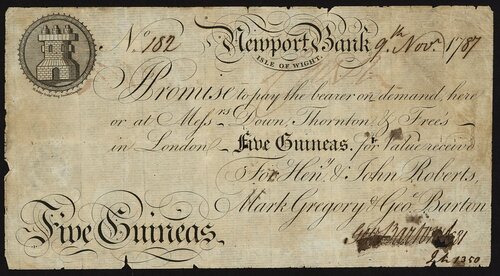 No. 182 Newport Bank 9th. Novr. 1787
ISLE OF WIGHT.
Promise to pay the bearer on demand, here
or at Messrs. Down, Thornton, & Frees
in London Five Guineas, for Value received
For Heny. & John Roberts,
Mark Gregory & Geo. Barton
Five Guineas.
Geo Barton